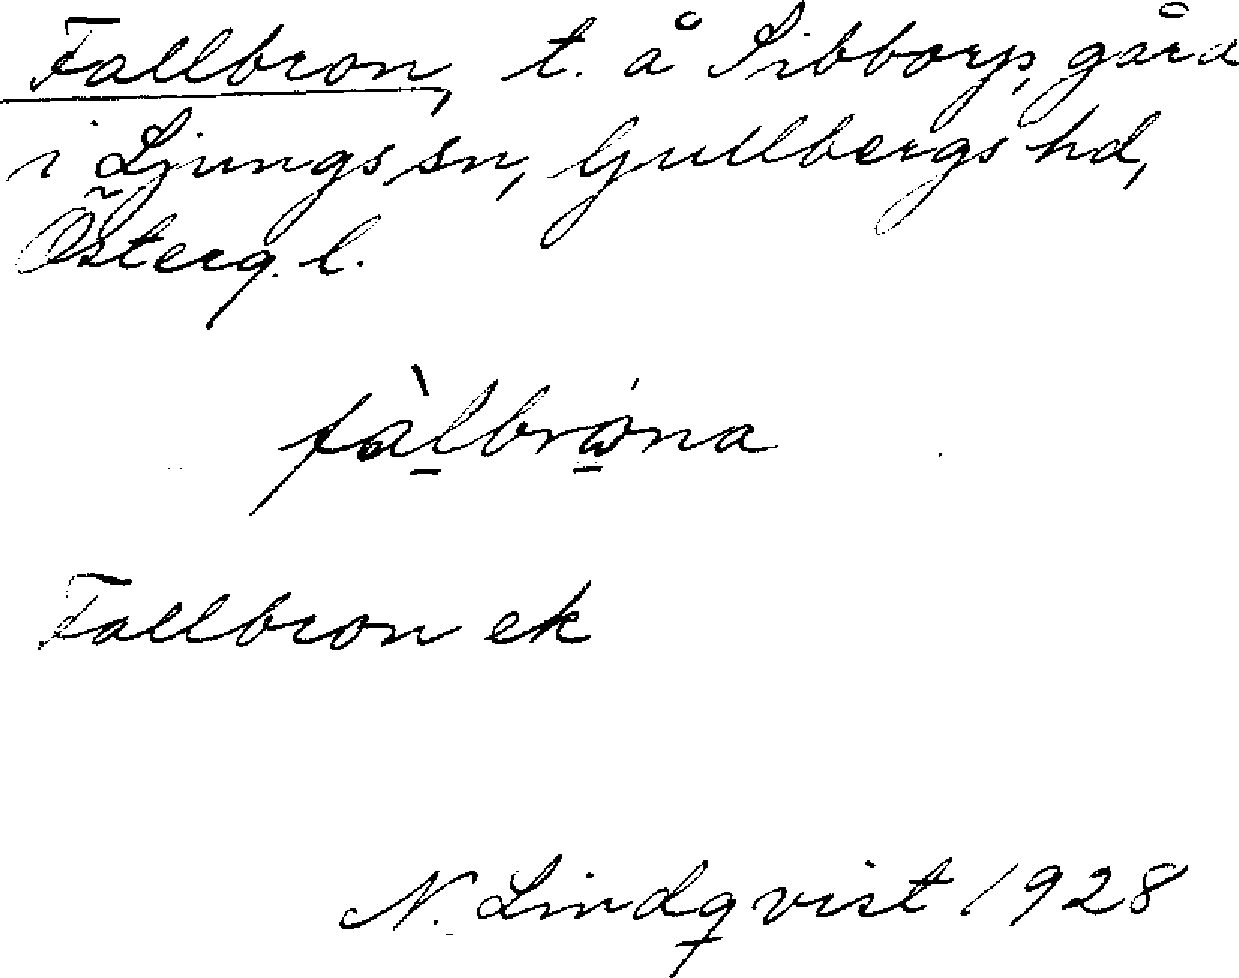 Fallbron, t. å Sibborp, gård
i Ljungs sn, Gullbergs hd,
Österg. l.
fàlbrona
Fallbron ek
N. Lindqvist 1928